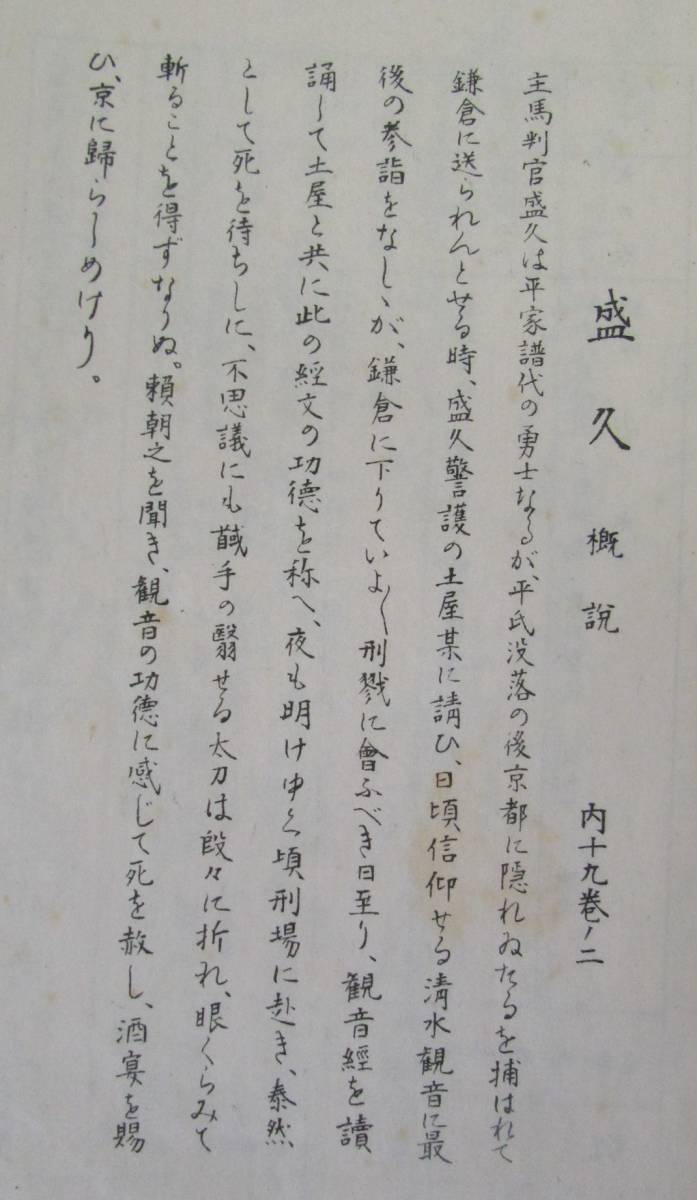 盛久 概説 内十九巻ノ二
主馬判官盛久は平家譜代の勇士なるが、平氏没落の後京都に隠れゐたるを捕はれて
鎌倉に送られんとせる時、盛久警護の土屋某に請ひ、日頃信仰せる清水観音に最
後の参詣をなしゝが、鎌倉に下りていよ〱刑戮に會ふべき日至り、観音經を讀
誦して土屋と共に此の經文の功徳を称へ、夜も明けゆく頃刑場に赴き、泰然
として死を待ちしに、不思議にも 手の翳せる太刀は段々に折れ、眼くらみて
斬ることを得ずなりぬ。頼朝之を聞き、観音の功徳に感じて死を赦し、酒宴を賜
ひ、京に歸らしめけり。